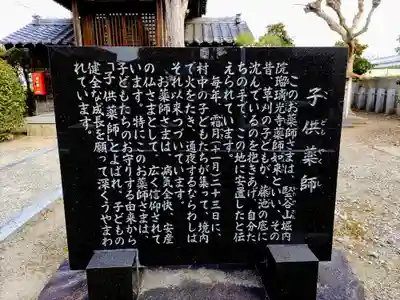 子供薬師
このお薬師さまは、堅谷山堀内
院瑠璃光寺薬師如来といい、その
昔、草刈りの子どもが、蒲池の底に
沈んでいるのを抱きあげ、自分た
ちの手で、この地に安置したと伝
えられています。
毎年、霜月(十一月)二十三日に、
村中の子どもたちが集って、境内
で火をたき、通夜するならわしは
それ以来つづいています。
お薬師さまは、病気全快、安産
の仏さまとして、広く信仰されて
います。特にこのお薬師さまは、
子どもたちのお守りする由来から
「子供薬師」とよばれ、子どもの
健全な成長を願って深くうやまわ
れています。